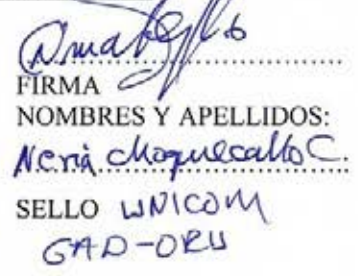 FIRMA
NOMBRES Y APELLIDOS:
Neria Choquecallo C.
SELLO UNICOM
GAD-ORU